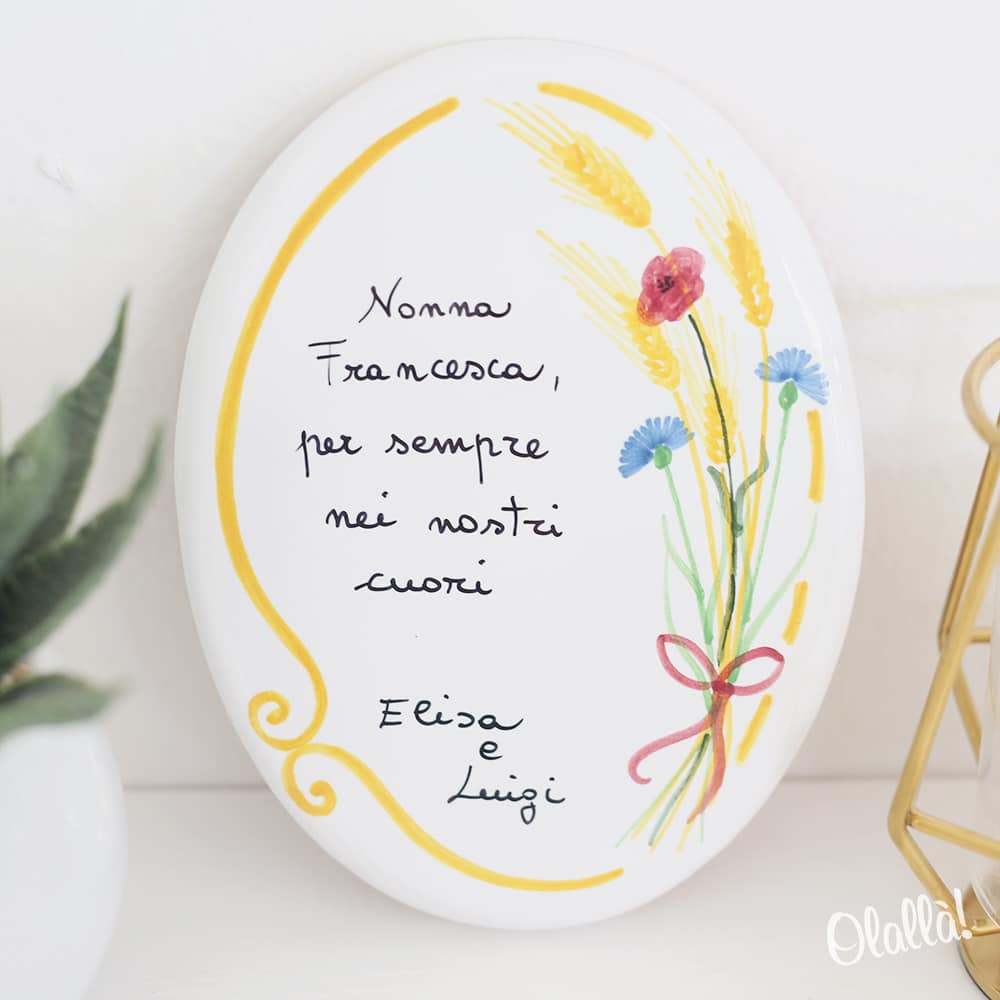 Nonna
Francesca,
per sempre
nei nostri
cuori
Elisa
e
Luigi
Olallà!